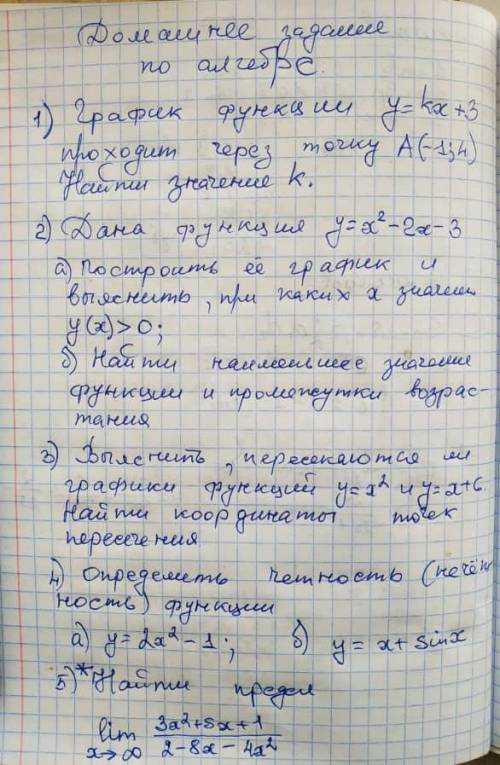 Домашнее задание
по алгебре.
1) График функции y=kx+3
проходит через точку A(-1;4)
Найти значение k.
2) Дана функция y=x²-2x-3
а) Построить её график и
выяснить, при каких x значения
y(x)>0;
б) Найти наименьшее значение
функции и промежутки возрас-
тания
3) Выяснить, пересекаются ли
графики функций y=x² и y=x+6.
Найти координаты точек
пересечения
4) Определить чётность (нечёт
ность) функции
а) y=2x²-1; б) y=x+sinx
5)* Найти предел
lim 3x²+5x+1
x→∞ 2-8x-4x²